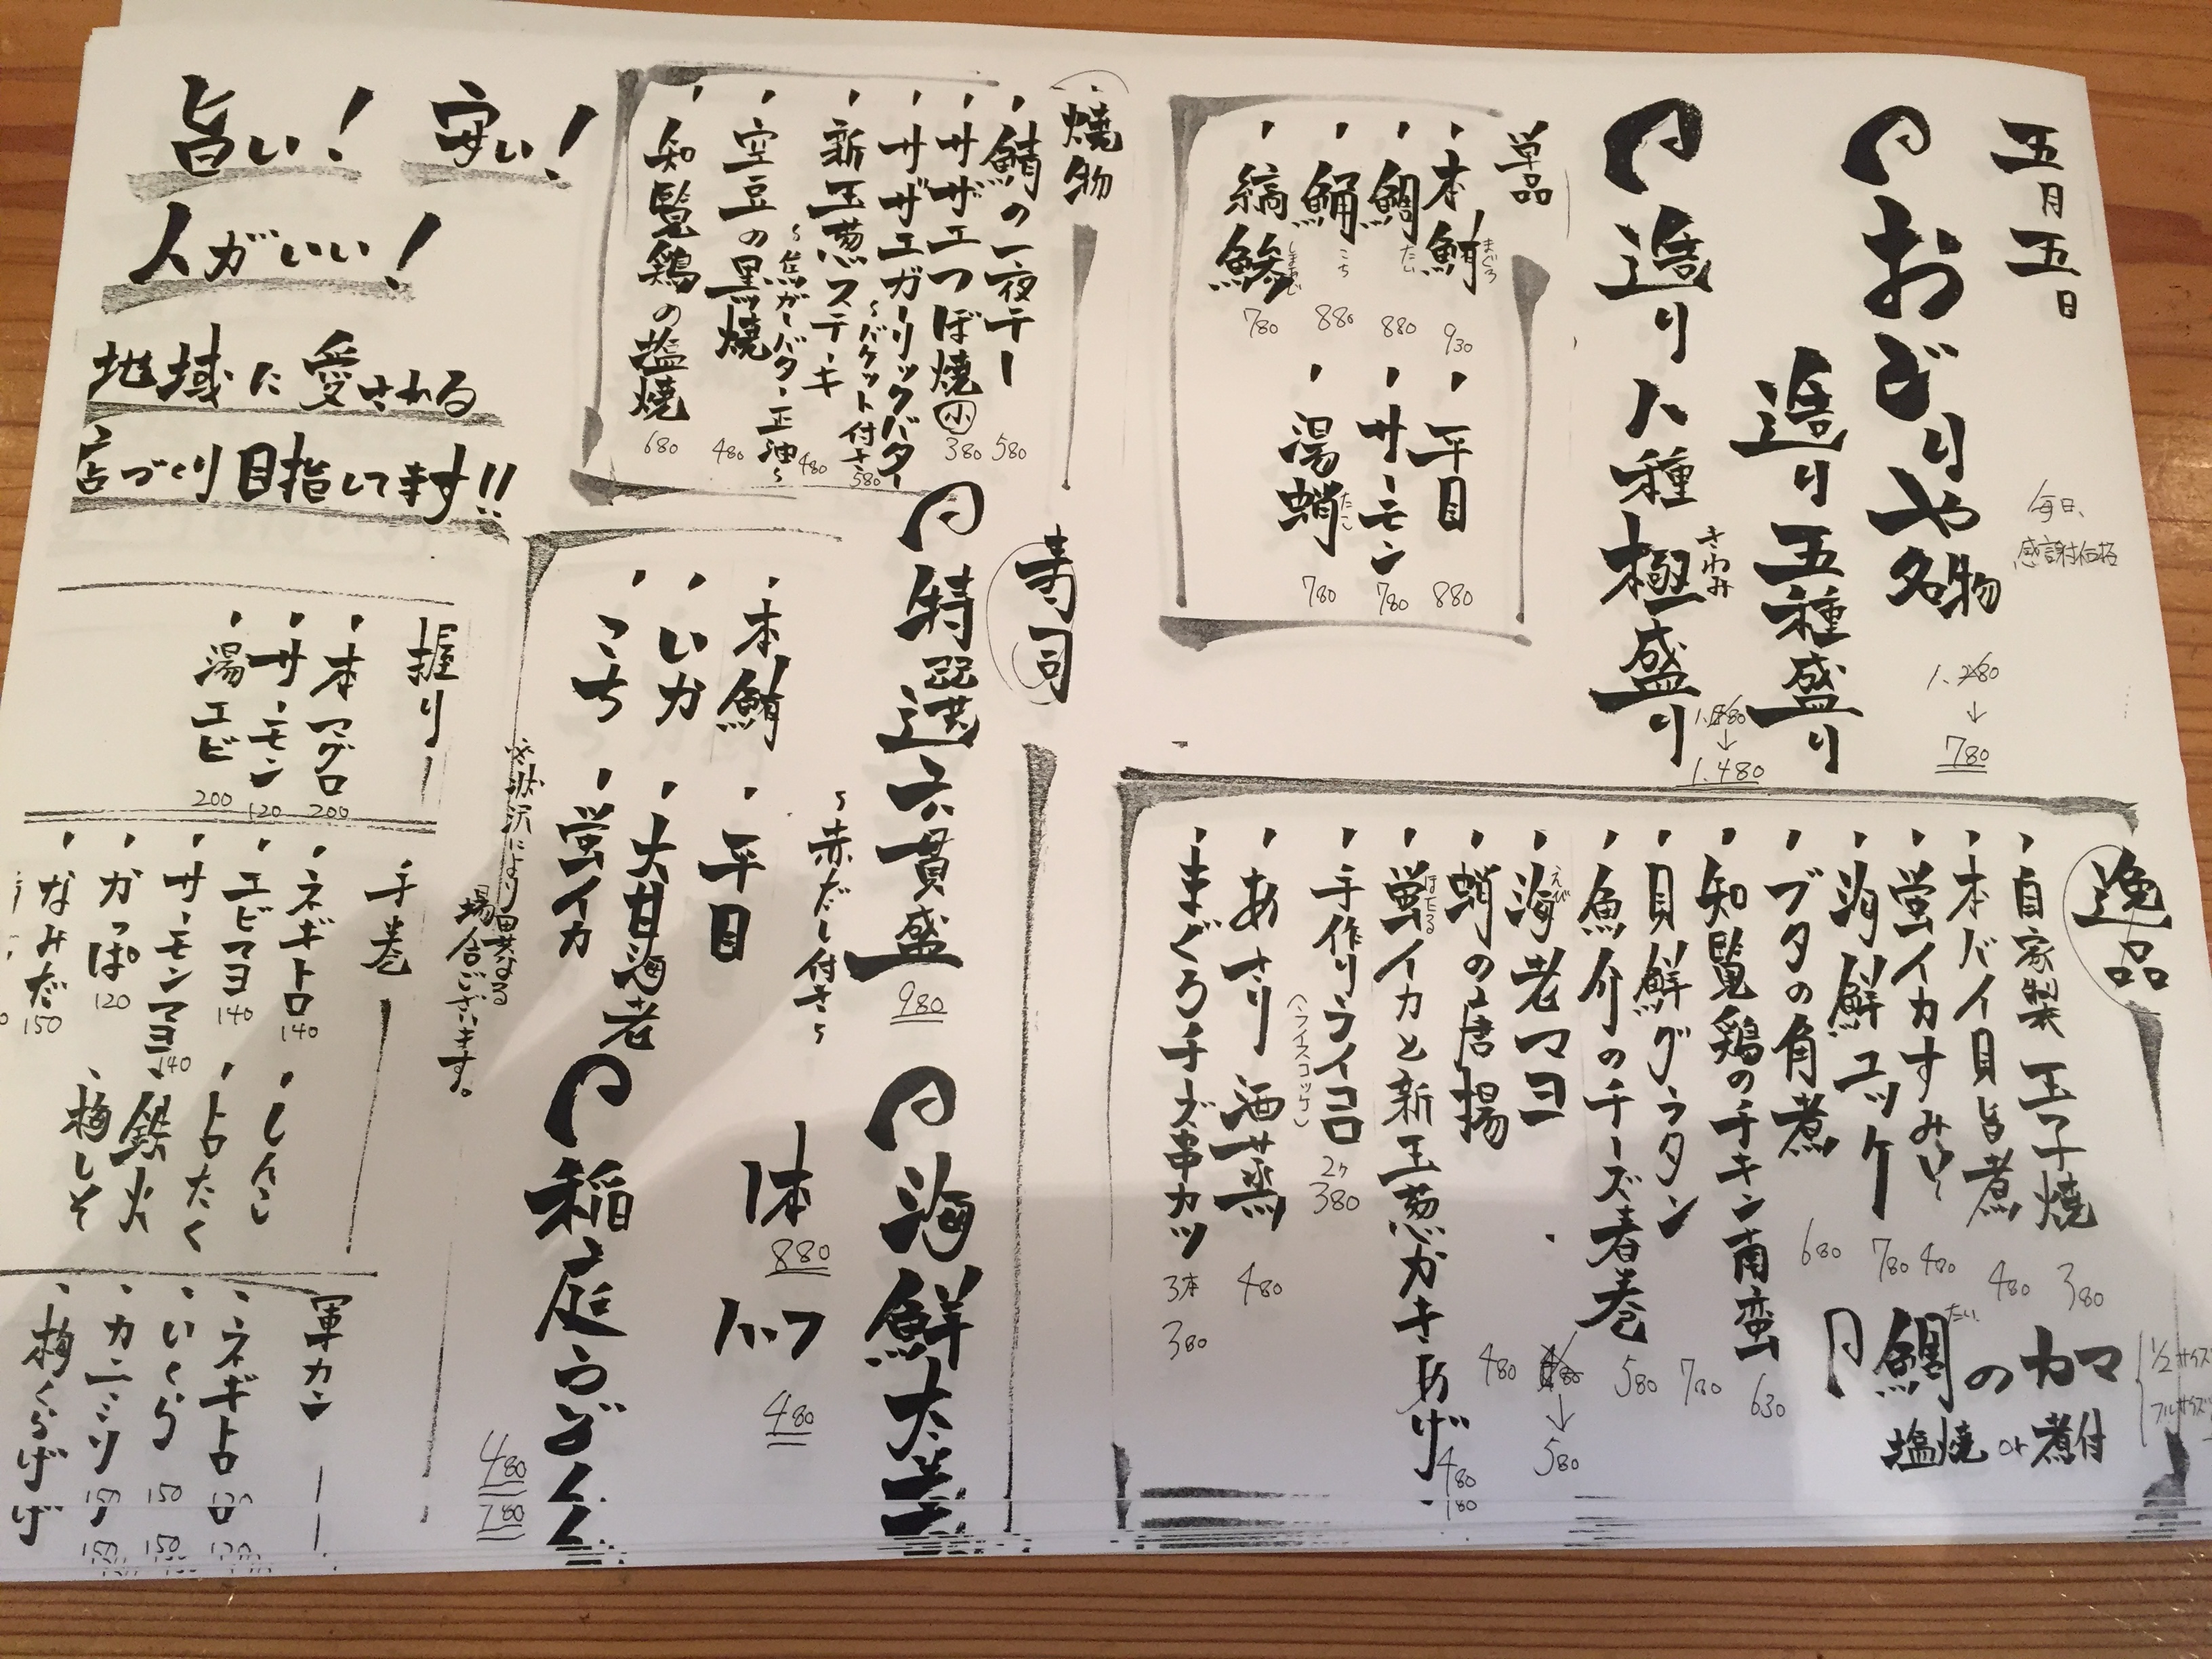 五月五日
おどりや名物
毎日、
感謝価格
造り五種盛り
1.280
↓
780
造り八種極盛り
きわみ
1.880
↓
1.480
単品
・本鮪 まぐろ 930
・鯛 たい 880
・鯒 こち 880
・縞鯵 しまあじ 780
・平目 880
・サーモン 780
・湯蛸 たこ 780
逸品
・自家製玉子焼 380
・本バイ貝旨煮 480
・蛍イカすみ 480
・海鮮ユッケ 780
・ブタの角煮 680
・知覧鶏のチキン南蛮 630
・貝鮮グラタン 780
・魚介のチーズ春巻 580
・海老マヨ えび
↓
580
・蛸の唐揚 480
・蛍イカと新玉葱カキあげ ほたる 480
・手作りライコロ 2ヶ 380
(ライスコロッケ)
・あさり酒蒸 480
・まぐろチーズ串カツ 3本 380
鯛のカマ たい
塩焼 or 煮付
1/2サイズ
フルサイズ
焼物
・鯖の一夜干し 580
・サザエつぼ焼 小 380
・サザエガーリックバター
〜バケット付き 580
・新玉葱ステーキ 480
〜焦がしバター正油〜
・空豆の黒焼 480
・知覧鶏の塩焼 680
寿司
特選六貫盛 980
〜赤だし付き〜
・本鮪
・いか
・こち
・平目
・大甘海老
・蛍イカ
※状況により異なる
場合ございます。
海鮮太巻
1本
880
ハーフ
480
稲庭うどん
480
780
旨い! 安い!
人がいい!
地域に愛される
店づくり目指してます!!
握り
・本マグロ 200
・サーモン 120
・湯エビ 200
手巻
・ネギトロ 140
・エビマヨ 140
・サーモンマヨ 140
・かっぱ 120
・なみだ 150
・しんこ
・トロたく
・鉄火
・梅しそ
軍カン
・ネギトロ
・いくら 150
・カニミソ 150
・梅くらげ